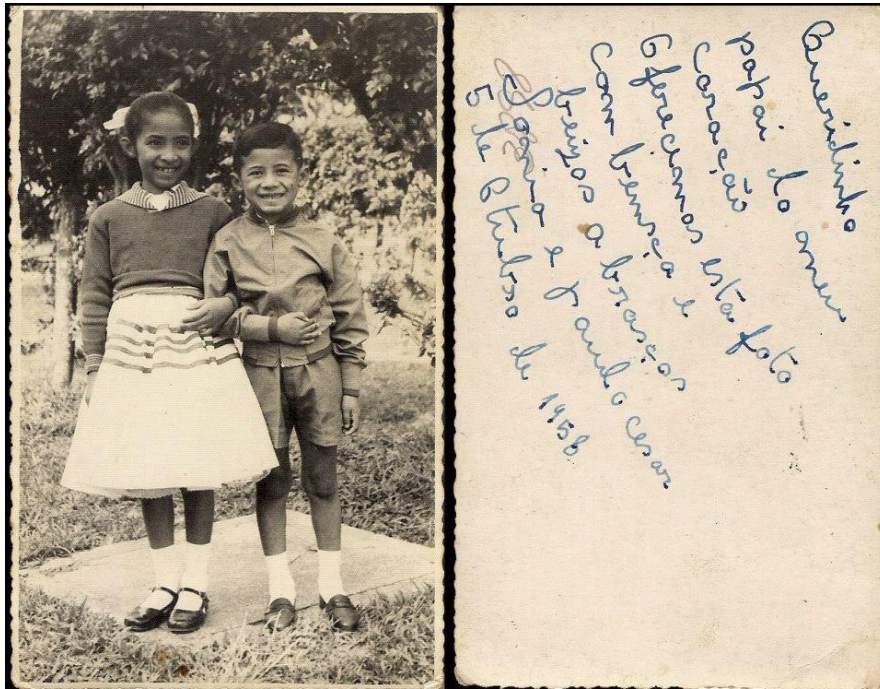 Queridinho
papai do meu
coração
Oferecemos esta foto
com bença e
beijos a braços
Sonia e Paulo Cesar
5 de Otubro de 1958